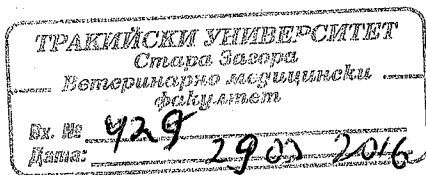 ТРАКИЙСКИ УНИВЕРСИТЕТ
Стара Загора
Ветеринарно медицински
факултет
Вх. № 429
Дата: 29 03 2016